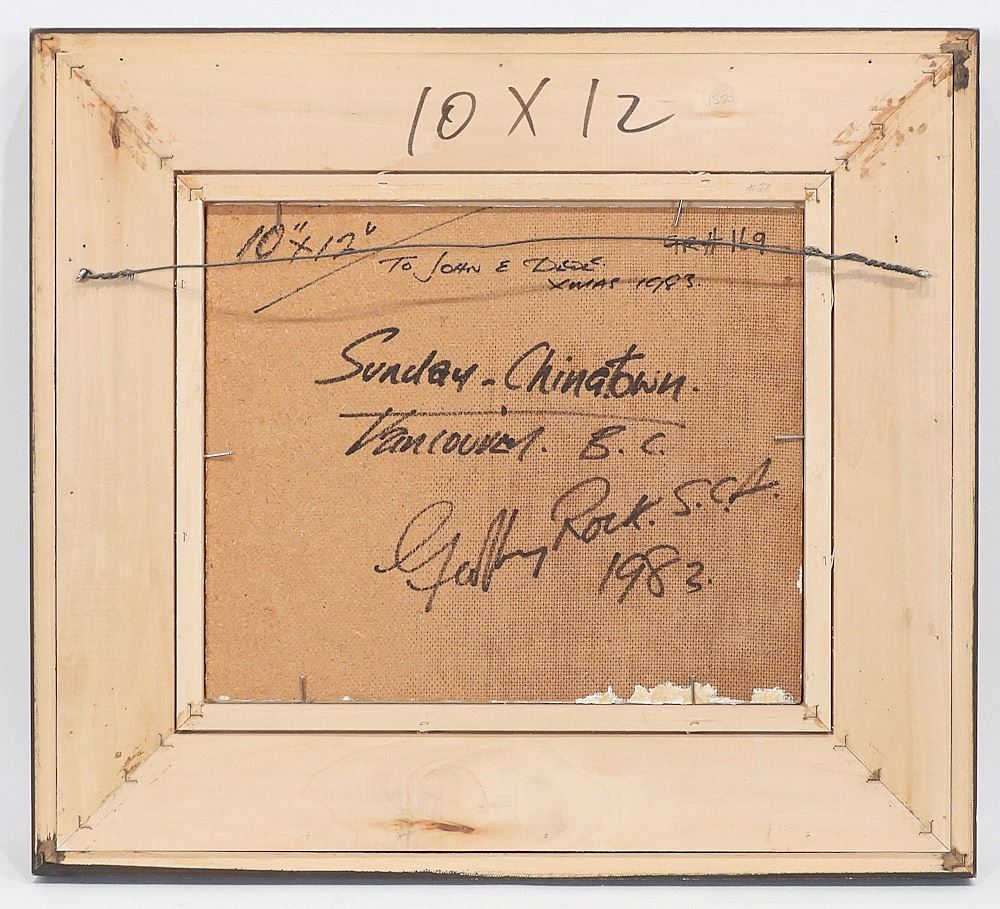 10 X 12
10" X 12" GR# 169
TO JOHN & DEDE.
XMAS 1983.
Sunday - Chinatown.
Vancouver. B.C.
Geoffrey Rock. S.C.A.
1983.